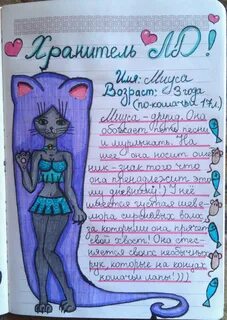 Хранитель ЛД!
Имя: Миуса
Возраст: 3 года
(по кошачьи 17 л)
Миуса - друид. Она
обожает петь песни
и мурлыкать. На
шее она носит оше
ник - знак того что
она принадлежит это
му дневнику!) У неё
имеется густая шеве
люра сиреневых волос,
за которыми она прячет
свой хвост! Она стес-
няется своих необычных
рук, которые на концах
кошачьи лапы!)))